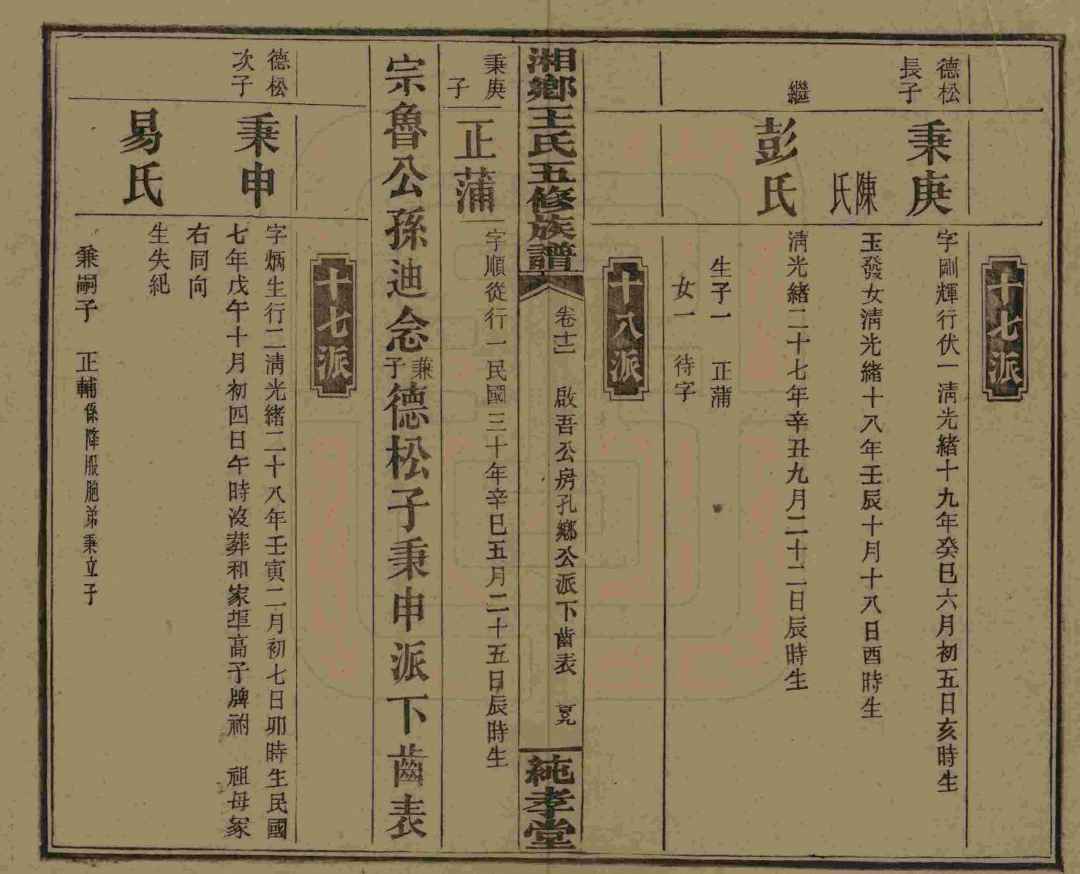 十七派
德松長子
秉庚
字剛輝行伏一淸光緒十九年癸巳六月初五日亥時生
陳氏
玉發女淸光緒十八年壬辰十月十八日酉時生
繼
彭氏
淸光緒二十七年辛丑九月二十二日辰時生
生子一 正蒲
女一 待字
十八派
湘鄉王氏五修族譜
卷十二 啟吾公房孔鄉公派下齒表
純孝堂
秉庚子
正蒲
字順從行一民國三十年辛巳五月二十五日辰時生
宗魯公孫迪念兼子德松子秉申派下齒表
十七派
德松次子
秉申
字炳生行二淸光緒二十八年壬寅二月初七日卯時生民國
七年戊午十月初四日午時沒葬和家 高子牌 祖母冢
右同向
易氏
生失紀
兼嗣子 正輔係降服胞弟秉立子